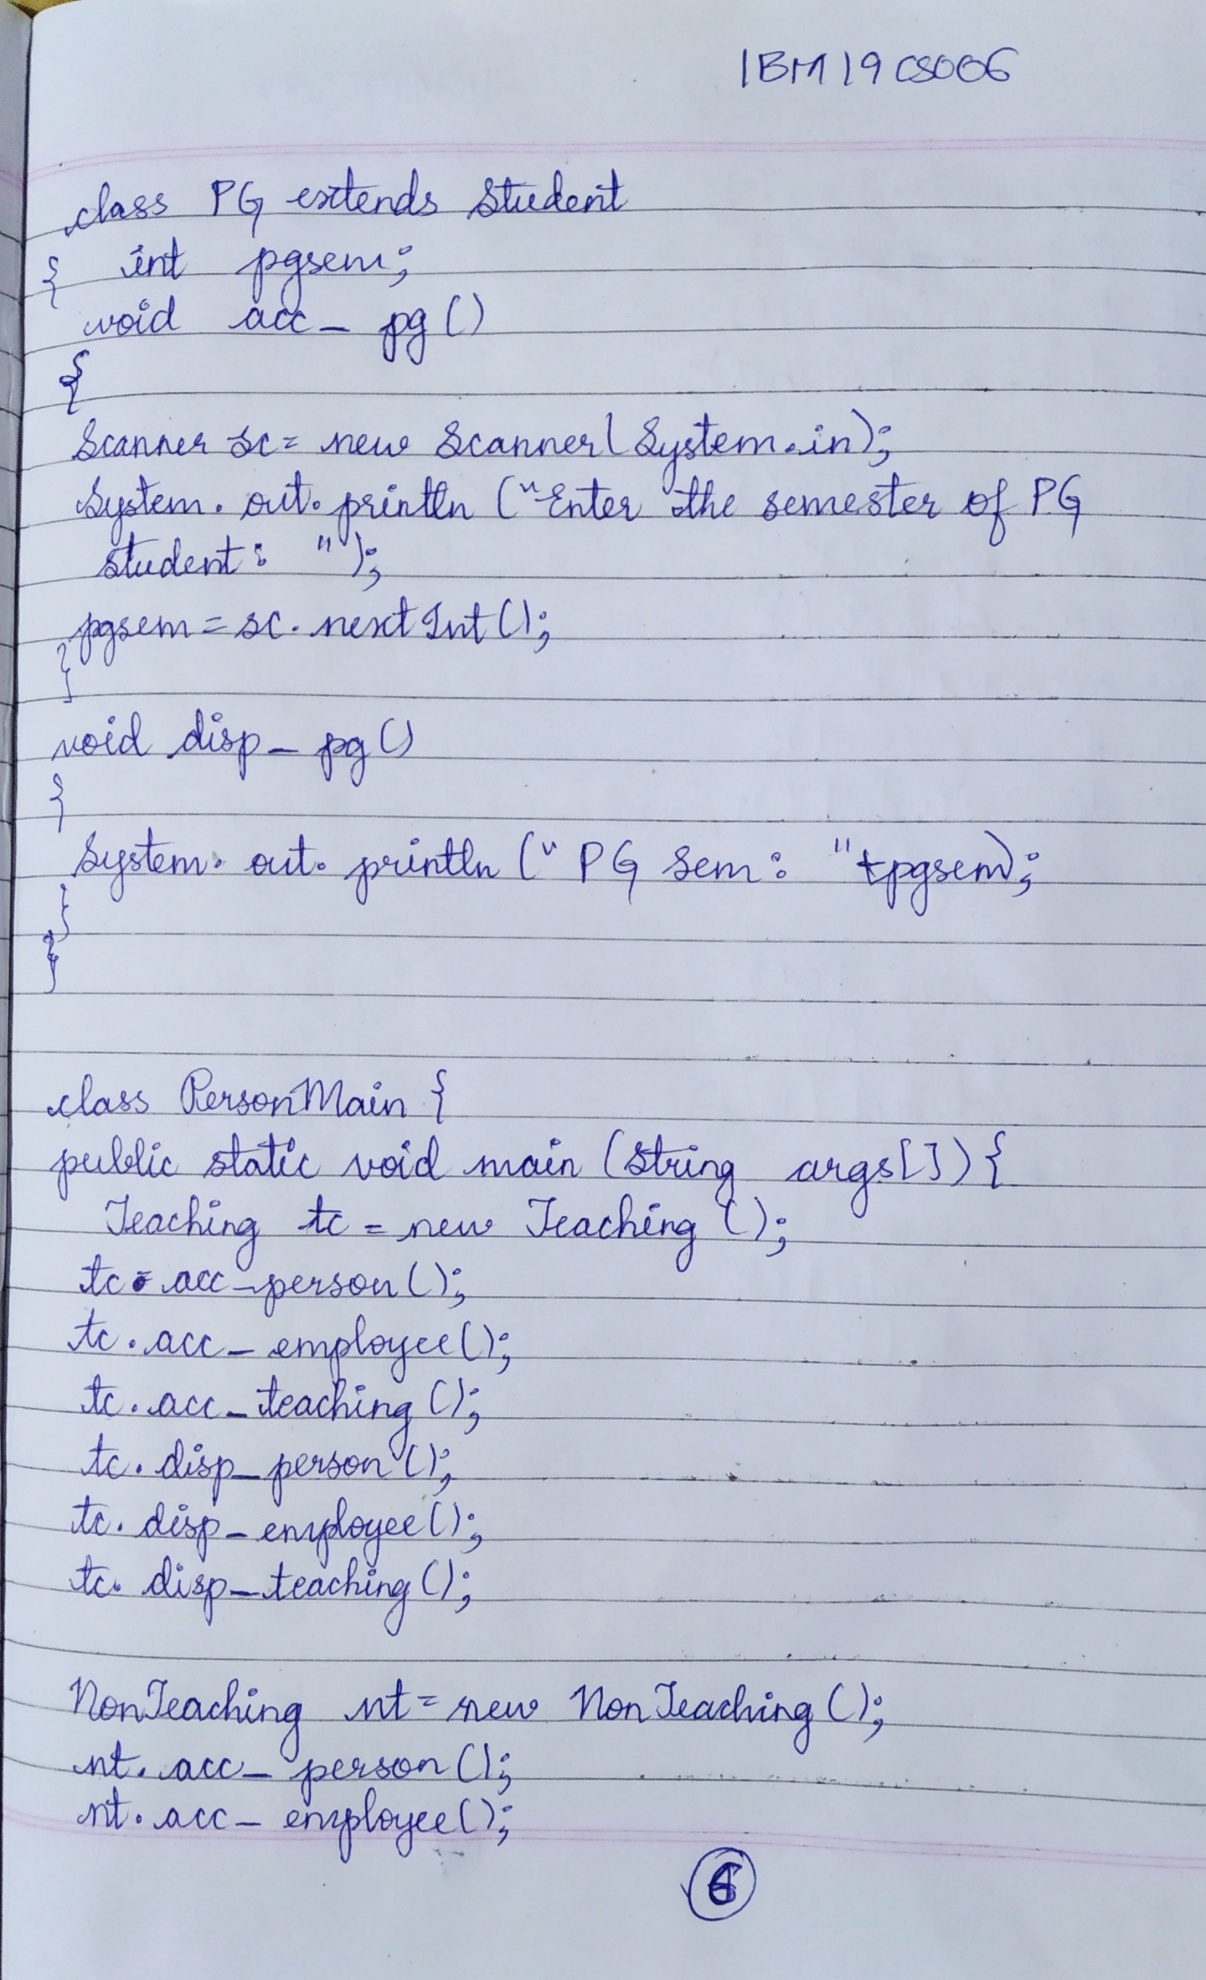 1BM19CS006
class PG extends Student
{ int pgsem;
void acc_pg()
{
Scanner sc = new Scanner(System.in);
System.out.println ("Enter the semester of PG
student: ");
pgsem = sc.nextInt();
}
void disp_pg()
{
System.out.println ("PG Sem: "+pgsem);
}
}
class PersonMain {
public static void main (String args[]) {
Teaching tc = new Teaching ();
tc.acc_person();
tc.acc_employee();
tc.acc_teaching();
tc.disp_person();
tc.disp_employee();
tc.disp_teaching();
NonTeaching nt = new NonTeaching();
nt.acc_person();
nt.acc_employee();
6